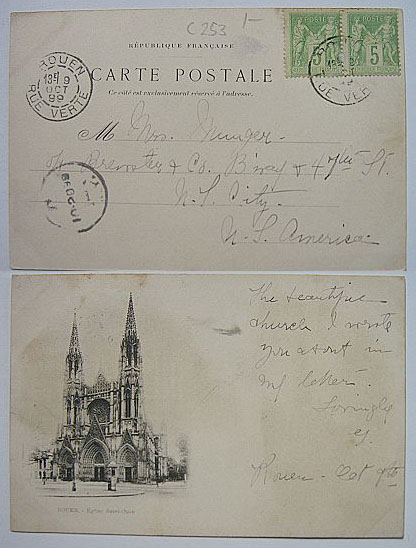 C 253 1-
RÉPUBLIQUE FRANÇAISE
CARTE POSTALE
Ce côté est exclusivement réservé à l'adresse.
ROUEN
9
OCT
99
RUE VERTE
POSTE
5
5
M Mrs. Munger-
Brewster & Co. B'way & 47th St.
N. Y. City-
U. S. America-
The beautiful
church I wrote
you about in
my letter-
Lovingly
Rouen - Oct 9th
ROUEN. - Eglise Saint-Ouen